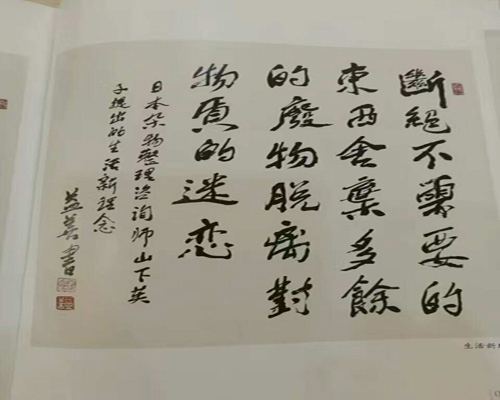 斷絕不需要的
東西舍棄多餘
的廢物脱离對
物质的迷恋
日本杂物整理咨询师山下英
子提出的生活新理念
益善書
生活新